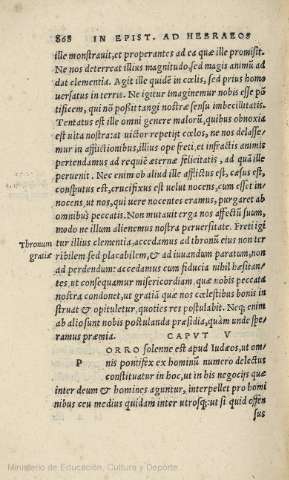 868 IN EPIST. AD HEBRAEOS
ille monstrauit, et properantes ad ea quæ ille promisit.
Ne nos deterreat illius magnitudo, sed magis animũ ad
dat clementia. Agit ille quidẽ in cœlis, sed prius homo
uersatus in terris. Ne igitur imaginemur nobis esse põ
tificem, qui nõ possit tangi nostræ sensu imbecillitatis.
Tentatus est ille omni genere malorũ, quibus obnoxia
est uita nostra: at uictor repetijt cœlos, ne nos delasse/
mur in afflictionibus, illius ope freti, et infractis animis
pertendamus ad requiẽ æternæ felicitatis, ad quã ille
peruenit. Nec enim ob aliud ille afflictus est, cæsus est,
consputus est, crucifixus est uelut nocens, cum esset in/
nocens, ut nos, qui uere nocentes eramus, purgaret ab
omnibus peccatis. Non mutauit erga nos affectũ suum,
modo ne illum alienemus nostra peruersitate. Freti igi
Thronum
gratiæ
tur illius clementia, accedamus ad thronũ eius non ter
ribilem sed placabilem, & ad iuuandum paratum, non
ad perdendum: accedamus cum fiducia nihil hæsitan/
tes, ut consequamur misericordiam, quæ nobis peccata
nostra condonet, ut gratiã quæ nos cœlestibus bonis in
struat & opituletur, quoties res postulabit. Neq; enim
ab alio sunt nobis postulanda præsidia, quàm unde spe/
ramus præmia. CAPVT V
PORRO solenne est apud Iudæos, ut om
nis pontifex ex hominũ numero delectus
constituatur in hoc, ut in his negocijs quæ
inter deum & homines aguntur, interpellet pro homi
nibus ceu medius quidam inter utrosq; ut si quid offen
sus
Ministerio de Educación, Cultura y Deporte